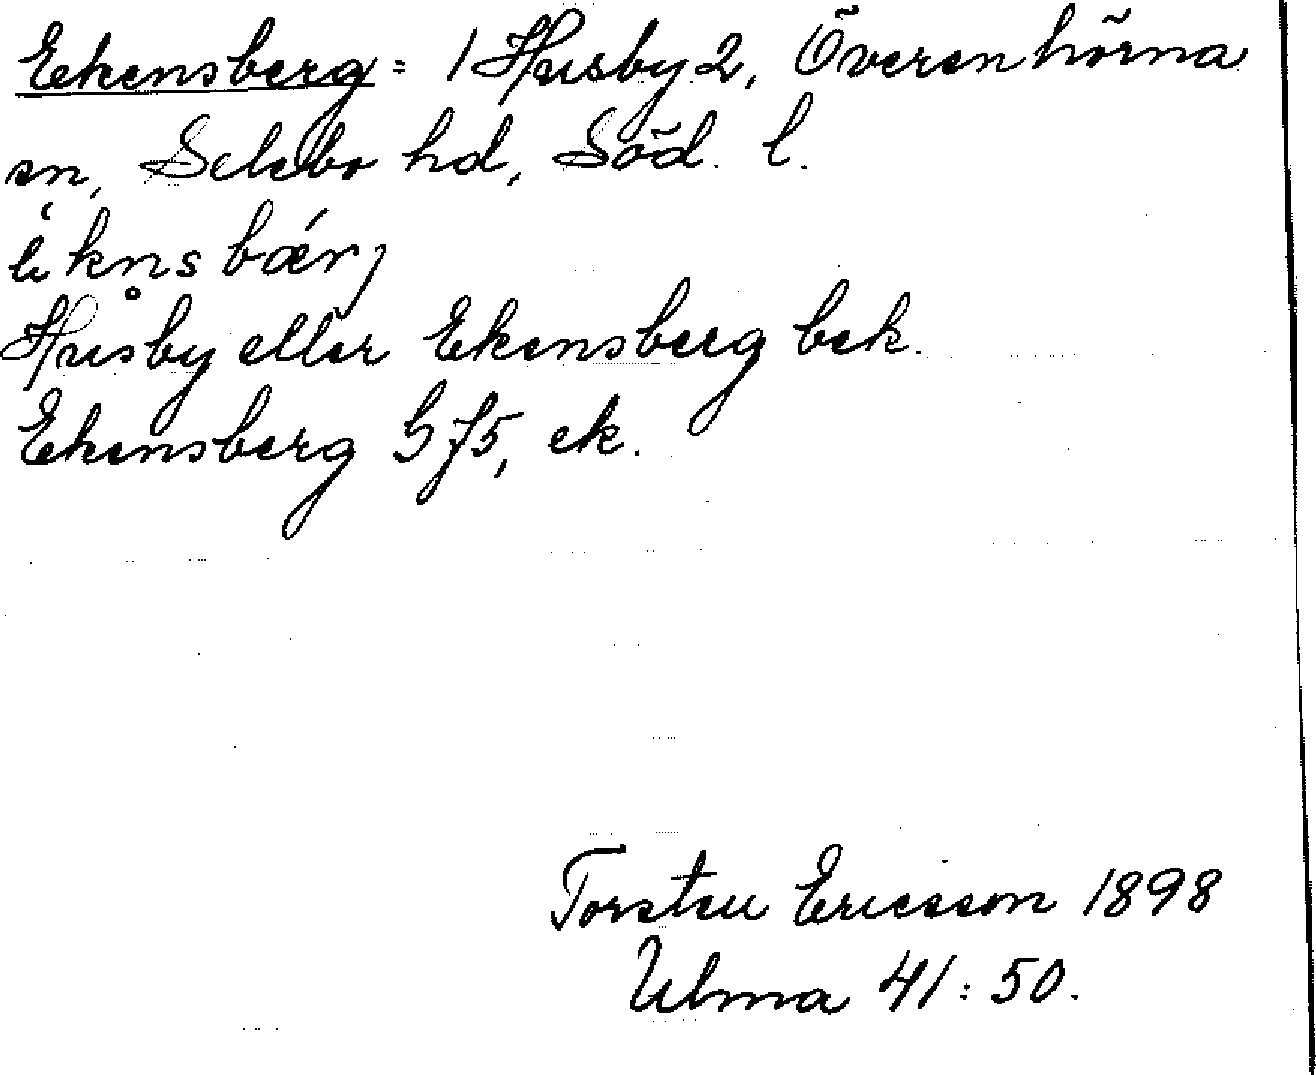 Ekensberg = 1 Husby 2, Överenhörna
sn, Selebo hd, Söd. l.
Husby eller Ekensberg bek.
Ekensberg G f5, ek.
Torsten Ericsson 1898
Ulma 41:50.